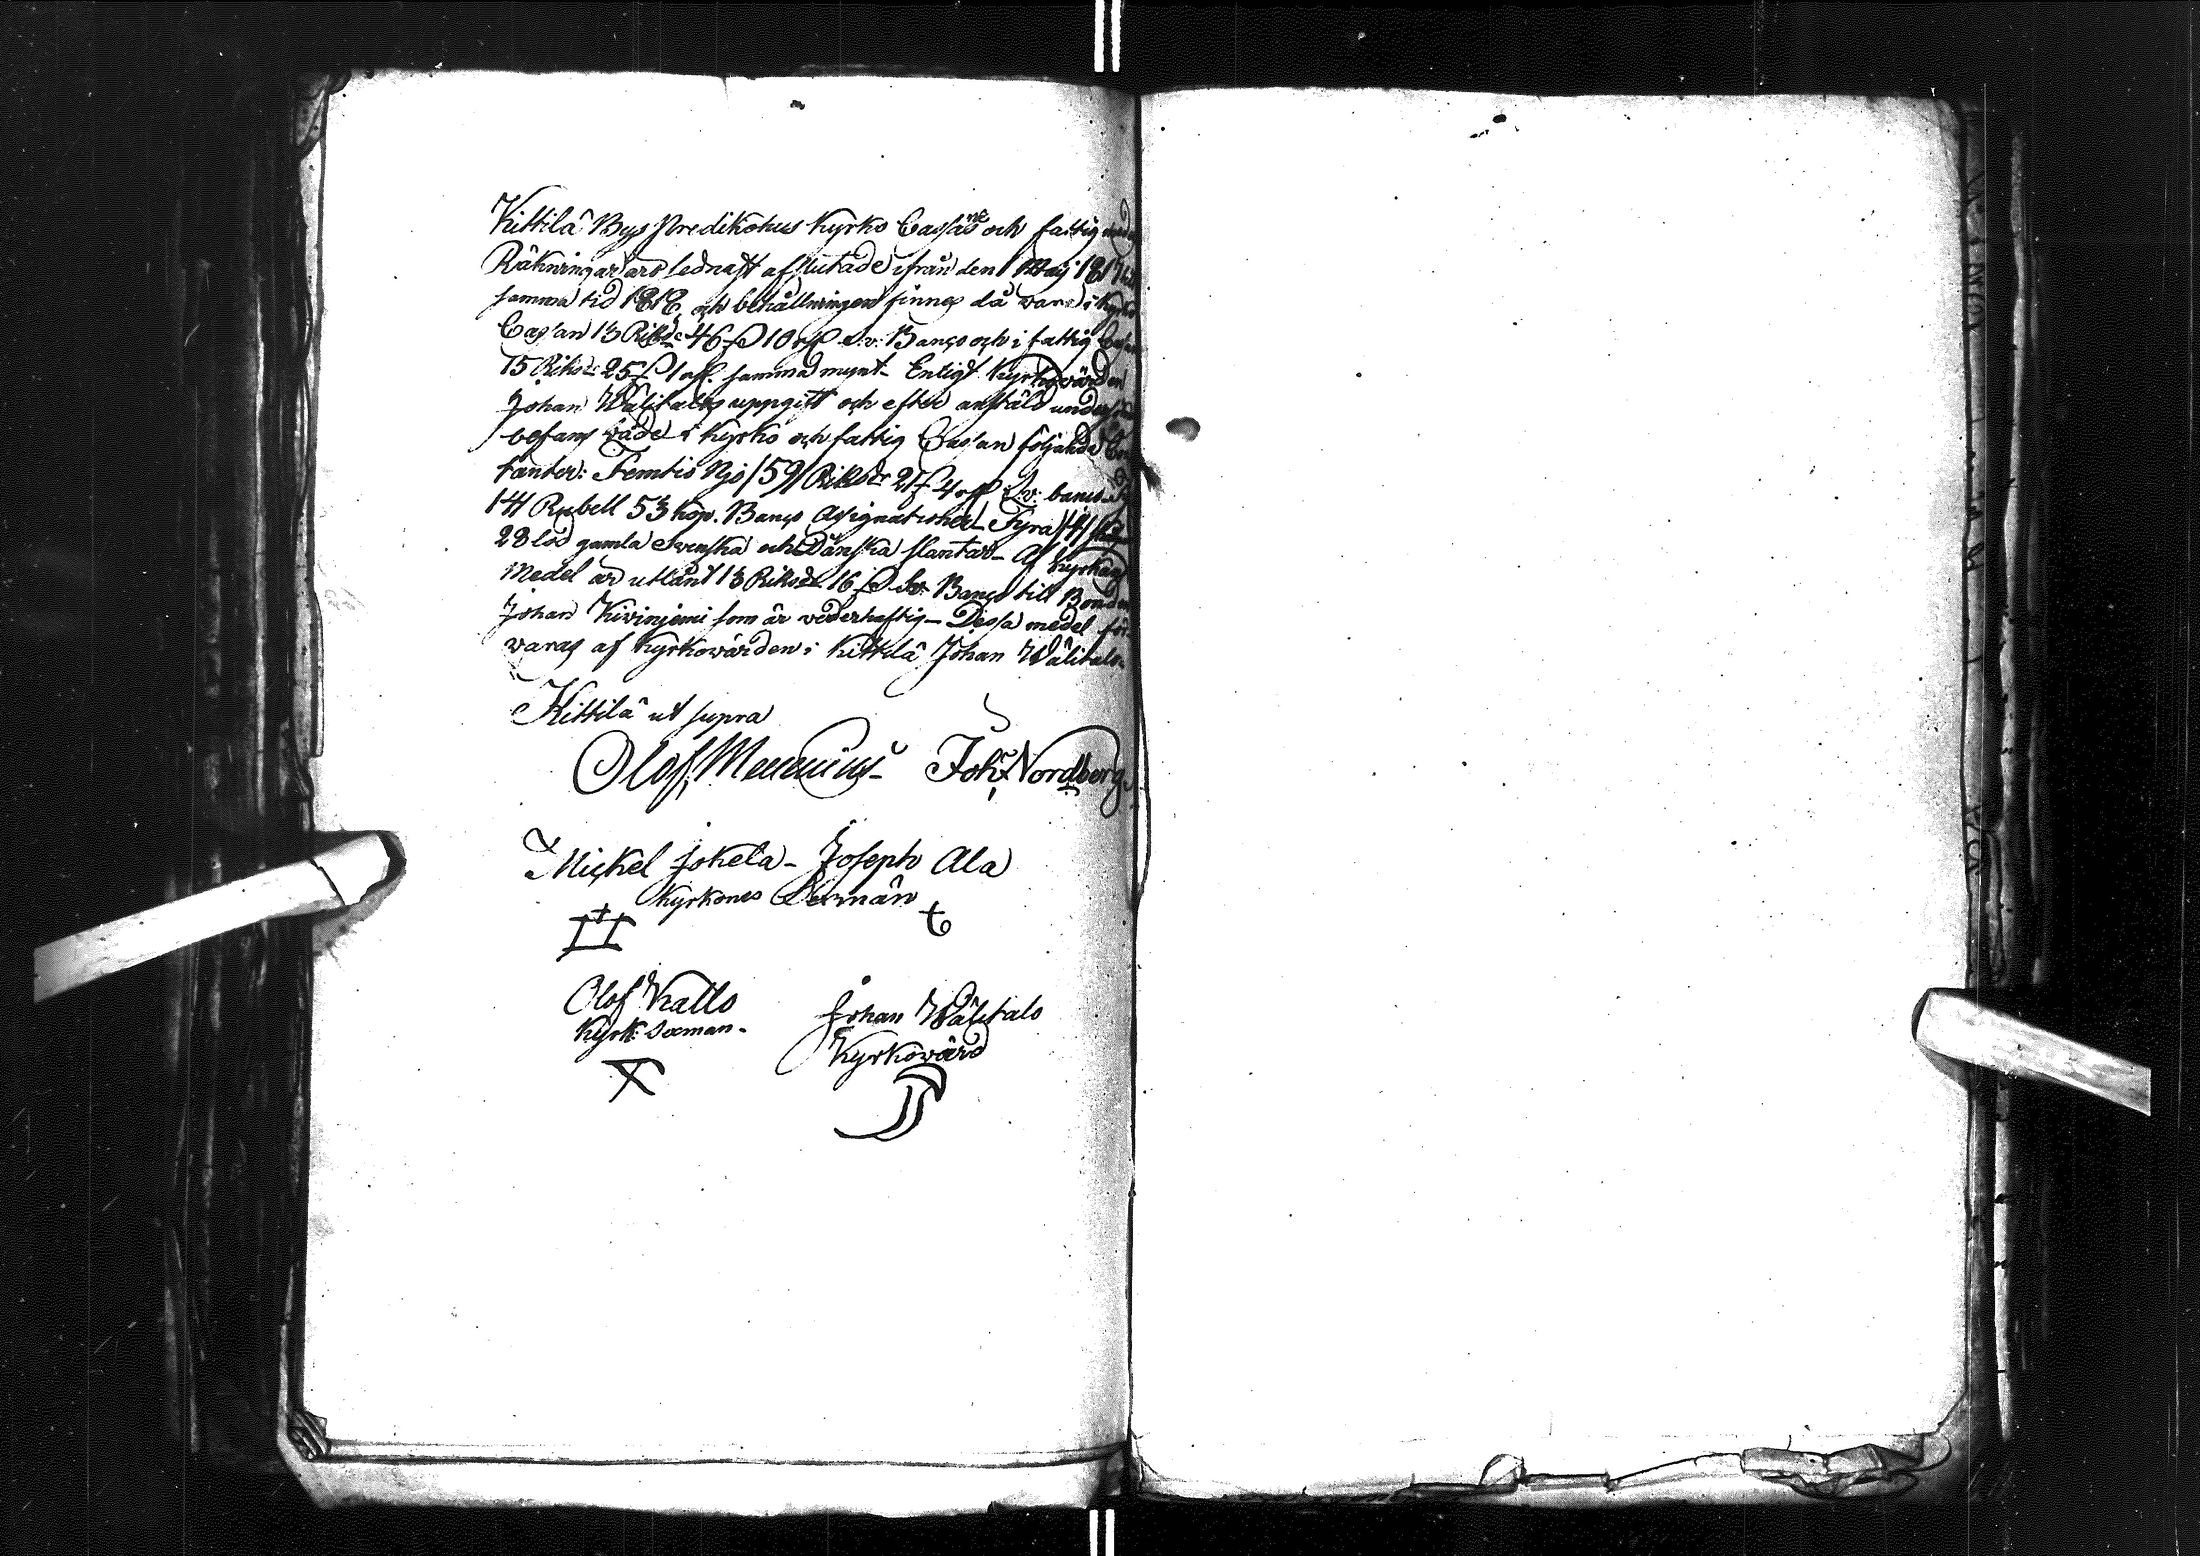 Kittilä Bys Predikohus Kyrko Cassans och fattig
Räkningar äro sednast afslutade ifrån den 1 Maij 1817
samma tid 1818, och behållningen finnes då vara i Kyrko
Cassan 13 Riksd 46 ß 10 rst Sv: Banco och i fattig
15 Riksd 25 ß 1 rst. samma mynt. Enligt Kyrkovärden
Johan Wälitalos uppgift och efter anstäld
befans både i Kyrko och fattig Cassan följande
tanter: Femtio Njo /59/ Riksdr 21 ß 4 rst Sv: banco
141 Rubell 53 kop. Banco Assignationer Fyra /4/
28 lod gamla Svenska och Danska slantar. Af Kyrkans
Medel är utlånt 13 Riksdr 16 ß Sv: Banco till Bonden
Johan Kiviniemi som är vederhaftig. Dessa medel för
varas af Kyrkovärden i Kittilä Johan Wälitalo.
Kittilä ut supra
Olof Johs Nordberg.
Mickel Jokela Joseph Ala
Kyrkones Sexmän
Olof Kallo Johan Wälitalo
Kyrk: Sexman. Kyrkovärd